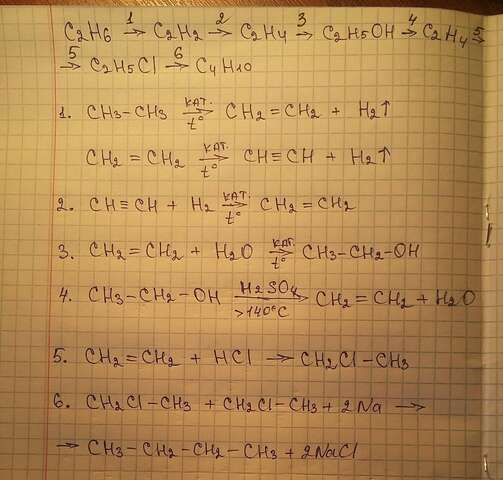 C2H6 1→ C2H2 2→ C2H4 3→ C2H5OH 4→ C2H4 5→
5→ C2H5Cl 6→ C4H10
1. CH3-CH3 кат. t° → CH2=CH2 + H2↑
CH2=CH2 кат. t° → CH≡CH + H2↑
2. CH≡CH + H2 кат. t° → CH2=CH2
3. CH2=CH2 + H2O кат. t° → CH3-CH2-OH
4. CH3-CH2-OH H2SO4 >140°C → CH2=CH2 + H2O
5. CH2=CH2 + HCl → CH2Cl-CH3
6. CH2Cl-CH3 + CH2Cl-CH3 + 2Na →
→ CH3-CH2-CH2-CH3 + 2NaCl